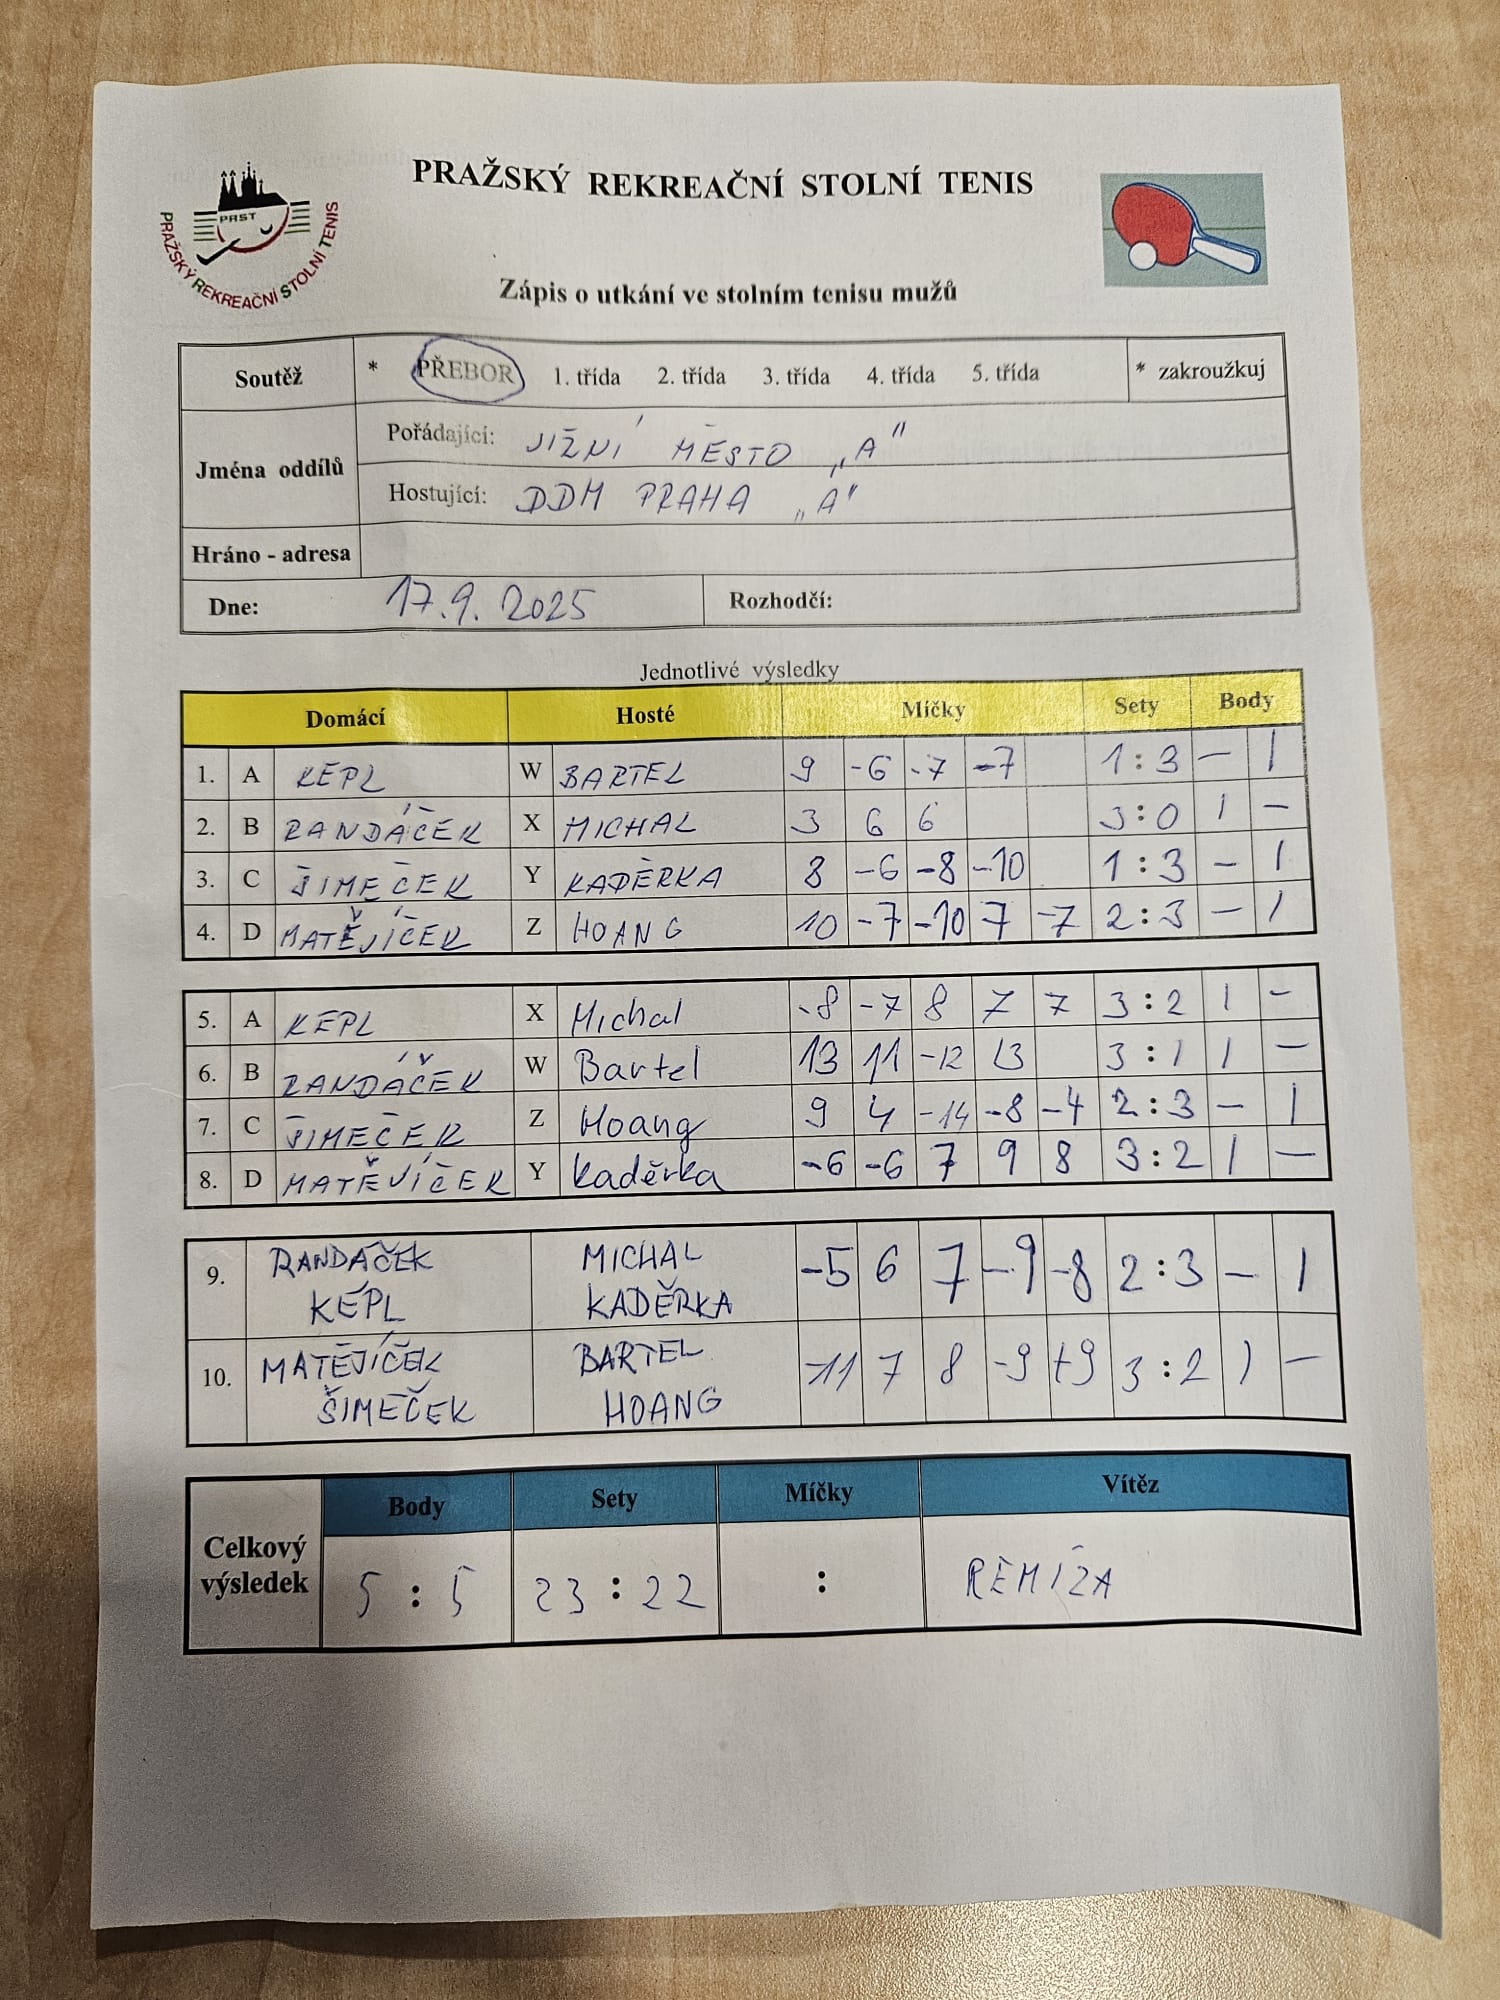 PRAŽSKÝ REKREAČNÍ STOLNÍ TENIS
PRST
PRAŽSKÝ REKREAČNÍ STOLNÍ TENIS
Zápis o utkání ve stolním tenisu mužů
Soutěž * PŘEBOR 1. třída 2. třída 3. třída 4. třída 5. třída * zakroužkuj
Jména oddílů
Pořádající: JIŽNÍ MĚSTO „A"
Hostující: DDM PRAHA „A"
Hráno - adresa
Dne: 17.9. 2025 Rozhodčí:
Jednotlivé výsledky
Domácí Hosté Míčky Sety Body
1. A KEPL W BARTEL 9 -6 -7 -7 1:3 - 1
2. B RANDÁČEK X MICHAL 3 6 6 3:0 1 -
3. C ŠIMEČEK Y KADĚRKA 8 -6 -8 -10 1:3 - 1
4. D MATĚJÍČEK Z HOANG 10 -7 -10 7 -7 2:3 - 1
5. A KEPL X Michal -8 -7 8 7 7 3:2 1 -
6. B RANDÁČEK W Bartel 13 11 -12 13 3:1 1 -
7. C ŠIMEČEK Z Hoang 9 4 -14 -8 -4 2:3 - 1
8. D MATĚJÍČEK Y Kaděrka -6 -6 7 9 8 3:2 1 -
9. RANDÁČEK MICHAL -5 6 7 -9 -8 2:3 - 1
KEPL KADĚRKA
10. MATĚJÍČEK BARTEL -11 7 8 -9 +9 3:2 1 -
ŠIMEČEK HOANG
Body Sety Míčky Vítěz
Celkový výsledek 5:5 23:22 : REMÍZA